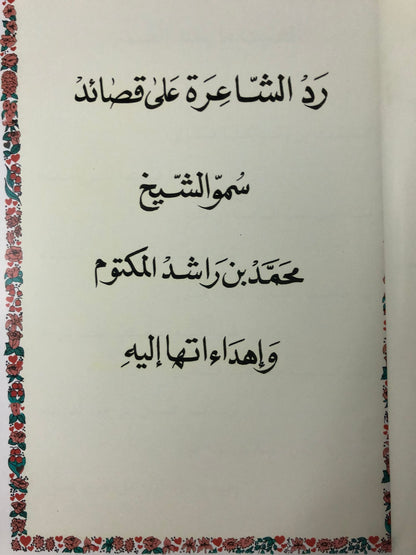 رَدُ الشَّاعِرَة عَلىٰ قصَائد
سُموّ الشَّيخ
محَمَّدْ بن رَاشد المكتوم
وَاِهدَاءاتها إليهِ